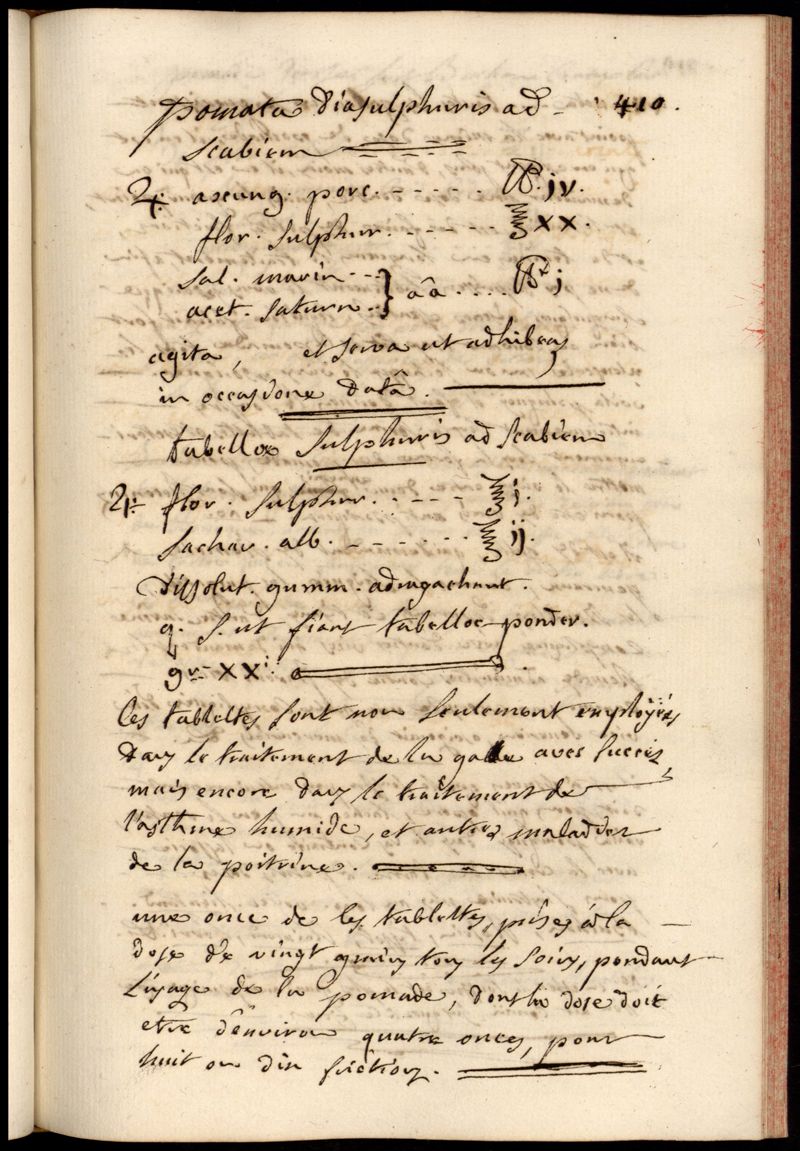 pomata diasulphuris ad 410.
scabiem
♃ axung. porc. - - - - - ℔. jv.
flor. sulphur. - - - - - - ℥ xx.
sal. marin - - -
acet. saturn. . } aâ . . . . ℔ j
agita, et serva ut adhibeas
in occasione datâ.
tabellæ sulphuris ad scabiem
♃ flor. sulphur. - - - - - ℥ j.
sachar. alb. - - - - - - ℥ ij.
dissolut. gumm. adragachant.
q. s. ut fiant tabellæ ponder.
gr. xxi.
Ces tablettes sont non seulement employées
dans le traitement de la galle avec succès,
mais encore dans le traitement de
l'asthme humide, et autres maladies
de la poitrine.
une once de ces tablettes, prises à la
dose de vingt grains tous les soirs, pendant
l'usage de la pomade, dont la dose doit
etre d'environ quatre onces, pour
huit ou dix frictions.